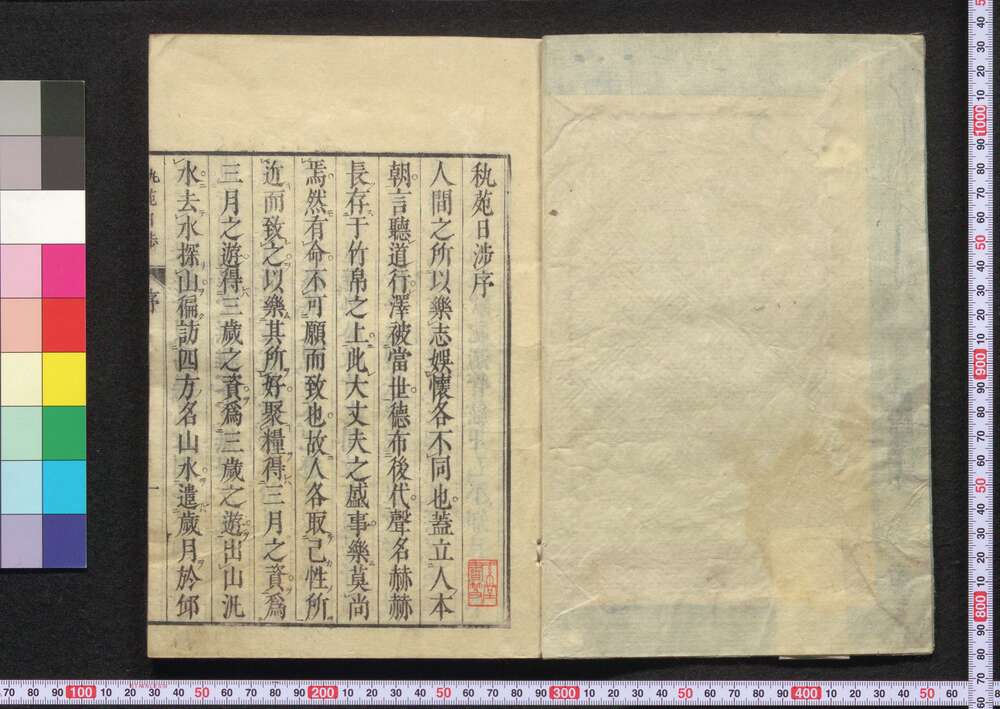 秇苑日渉序
人間之所以樂志娯懷各不同也蓋立人本
朝言聽道行澤被當世德布後代聲名赫赫
長存于竹帛之上此大丈夫之盛事樂莫尚
焉然有命不可願而致也故人各取己性所
近而致之以樂其所好聚糧得三月之資爲
三月之遊得三歲之資爲三歲之遊出山汎
水去水探山徧訪四方名山水遣歲月於邱
秇苑日渉 序 一